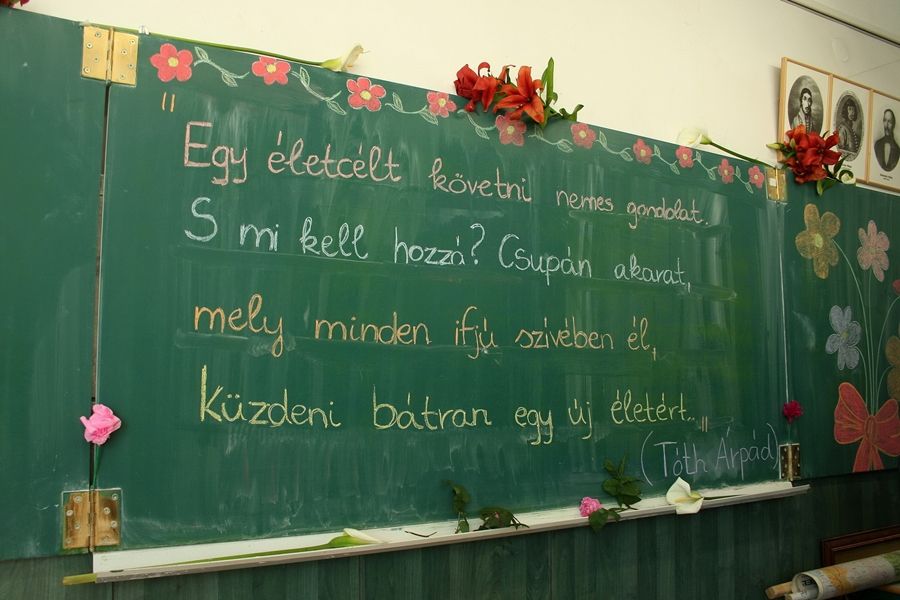 "Egy életcélt követni nemes gondolat.
S mi kell hozzá? Csupán akarat,
mely minden ifjú szívében él,
Küzdeni bátran egy új életért.."
(Tóth Árpád)